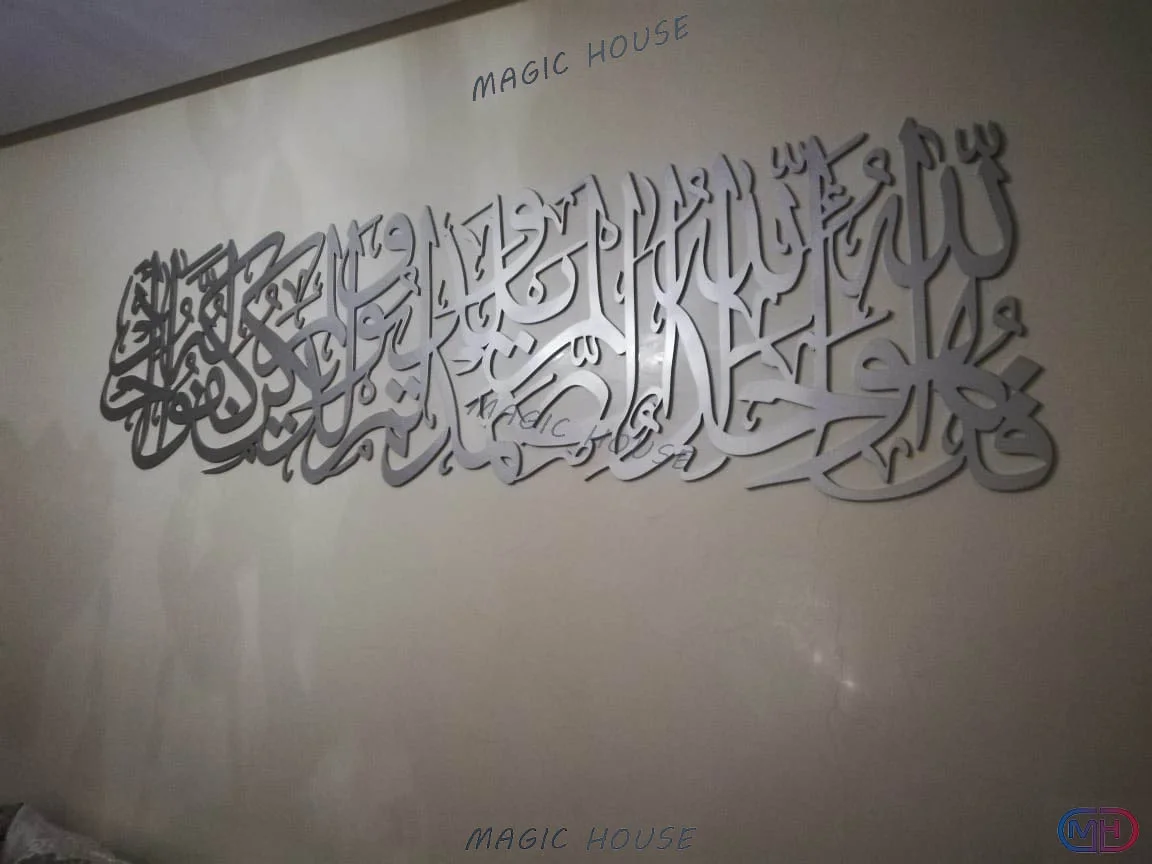 MAGIC HOUSE
قل هو الله أحد الله الصمد لم يلد ولم يولد ولم يكن له كفوا أحد
MAGIC HOUSE
MAGIC HOUSE
MH